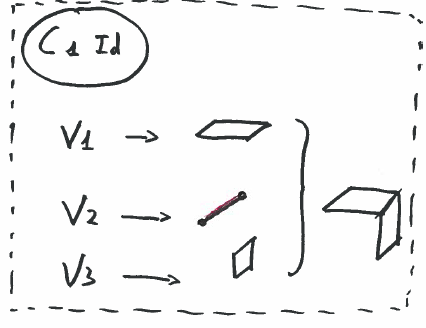 C1 Id
V1 →
V2 →
V3 →